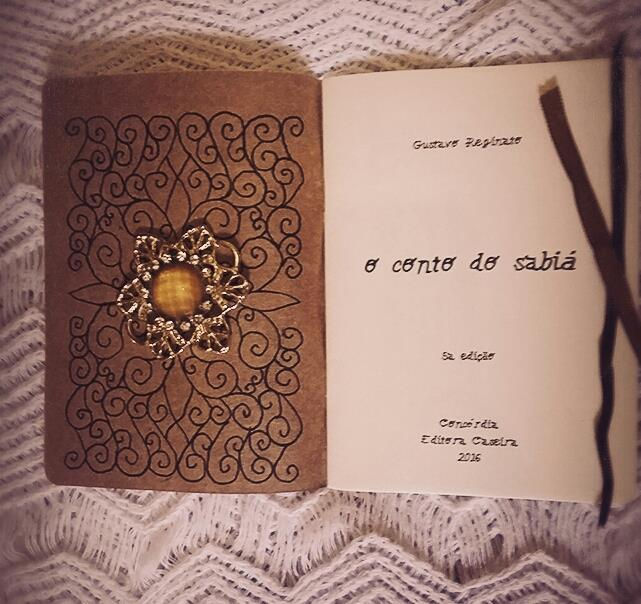 Gustavo Reginato
o conto do sabiá
5a edição
Concórdia
Editora Caseira
2016